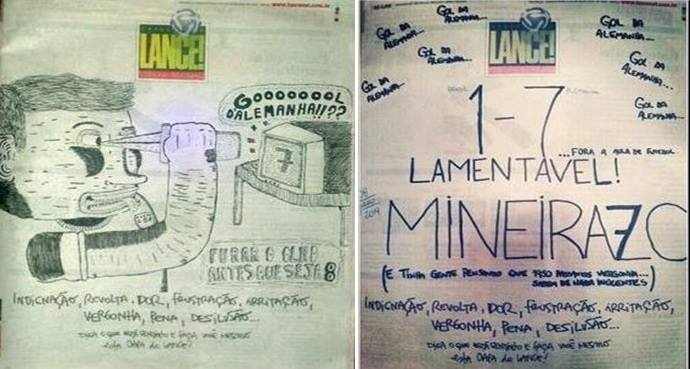 LANCE!
GOOOOOOOL
D'ALEMANHA!!??
7
FURAR O OLHO
ANTES QUE SEJA 8
INDIGNAÇÃO, REVOLTA, DOR, FRUSTRAÇÃO, IRRITAÇÃO,
VERGONHA, PENA, DESILUSÃO...
DIGA O QUE ESTÁ SENTINDO E FAÇA VOCÊ MESMO
ESTA CAPA DO LANCE!
LANCE!
GOL DA
ALEMANHA...
GOL DA
ALEMANHA...
GOL DA
ALEMANHA...
GOL DA
ALEMANHA...
GOL DA
ALEMANHA...
GOL DA
ALEMANHA...
GOL DA
ALEMANHA...
BRASIL
1-7
...FORA A AULA DE FUTEBOL
LAMENTÁVEL!
2014
MINEIRAZO
(E TINHA GENTE PENSANDO QUE 1950 HAVIAMOS VERGONHA...
SABEM DE NADA INOCENTES)
INDIGNAÇÃO, REVOLTA, DOR, FRUSTRAÇÃO, IRRITAÇÃO,
VERGONHA, PENA, DESILUSÃO...
DIGA O QUE ESTÁ SENTINDO E FAÇA VOCÊ MESMO
ESTA CAPA DO LANCE!